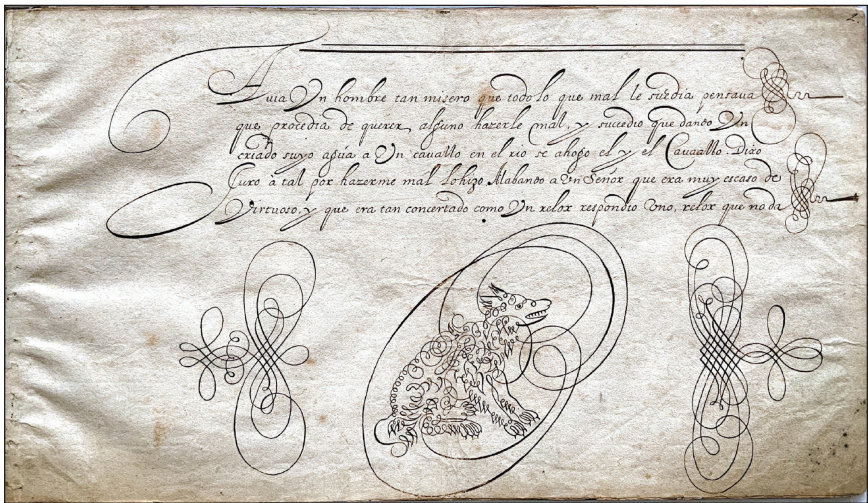 Avia Un hombre tan misero que todo lo que mal le suzedia pensava
que procedia de querer alguno hazerle mal, y sucedio que dando Un
criado suyo agúa a Un cavallo en el rio se ahogo el y el Cavallo. Dixo
Juro á tal por hazerme mal lo hizo Alabando a Un Señor que era muy escaso de
Virtuoso, y que era tan concertado como Un relox respondio Uno, relox que no da